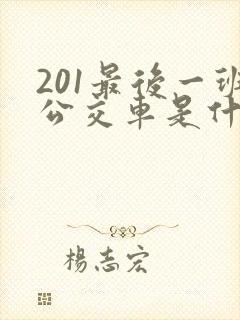 201最後一班
公交車是什
楊志宏